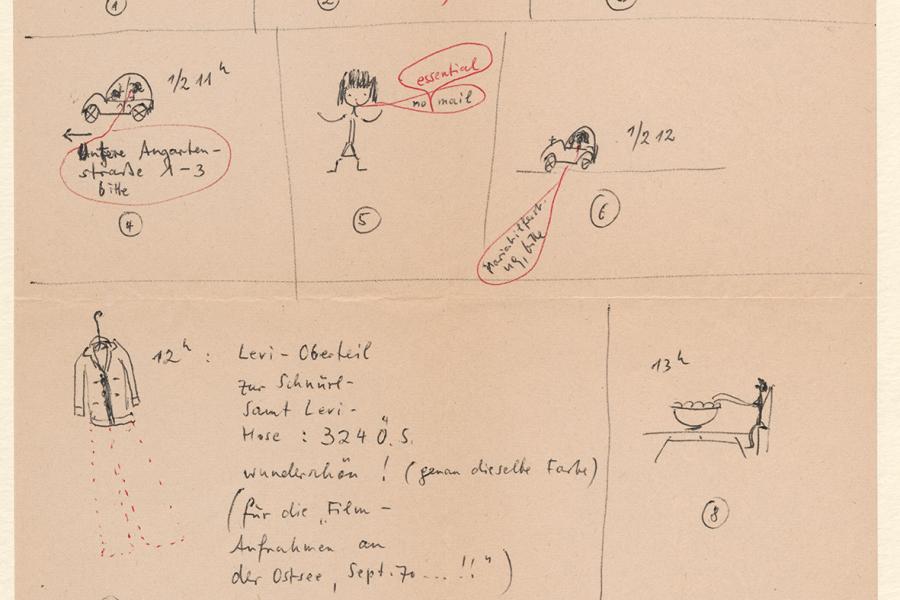 1
2
3
1/2 11 h
Untere Augarten-
straße 1-3
bitte
4
essential
no mail
5
1/2 12
Mariahilferstr.
49, bitte
6
12 h : Levi-Oberteil
zur Schnürl-
Samt Levi-
Hose : 324 Ö.S.
wunderschön ! (genau dieselbe Farbe)
(für die „Film-
Aufnahmen an
der Ostsee, Sept. 70 ... !!")
13 h
8